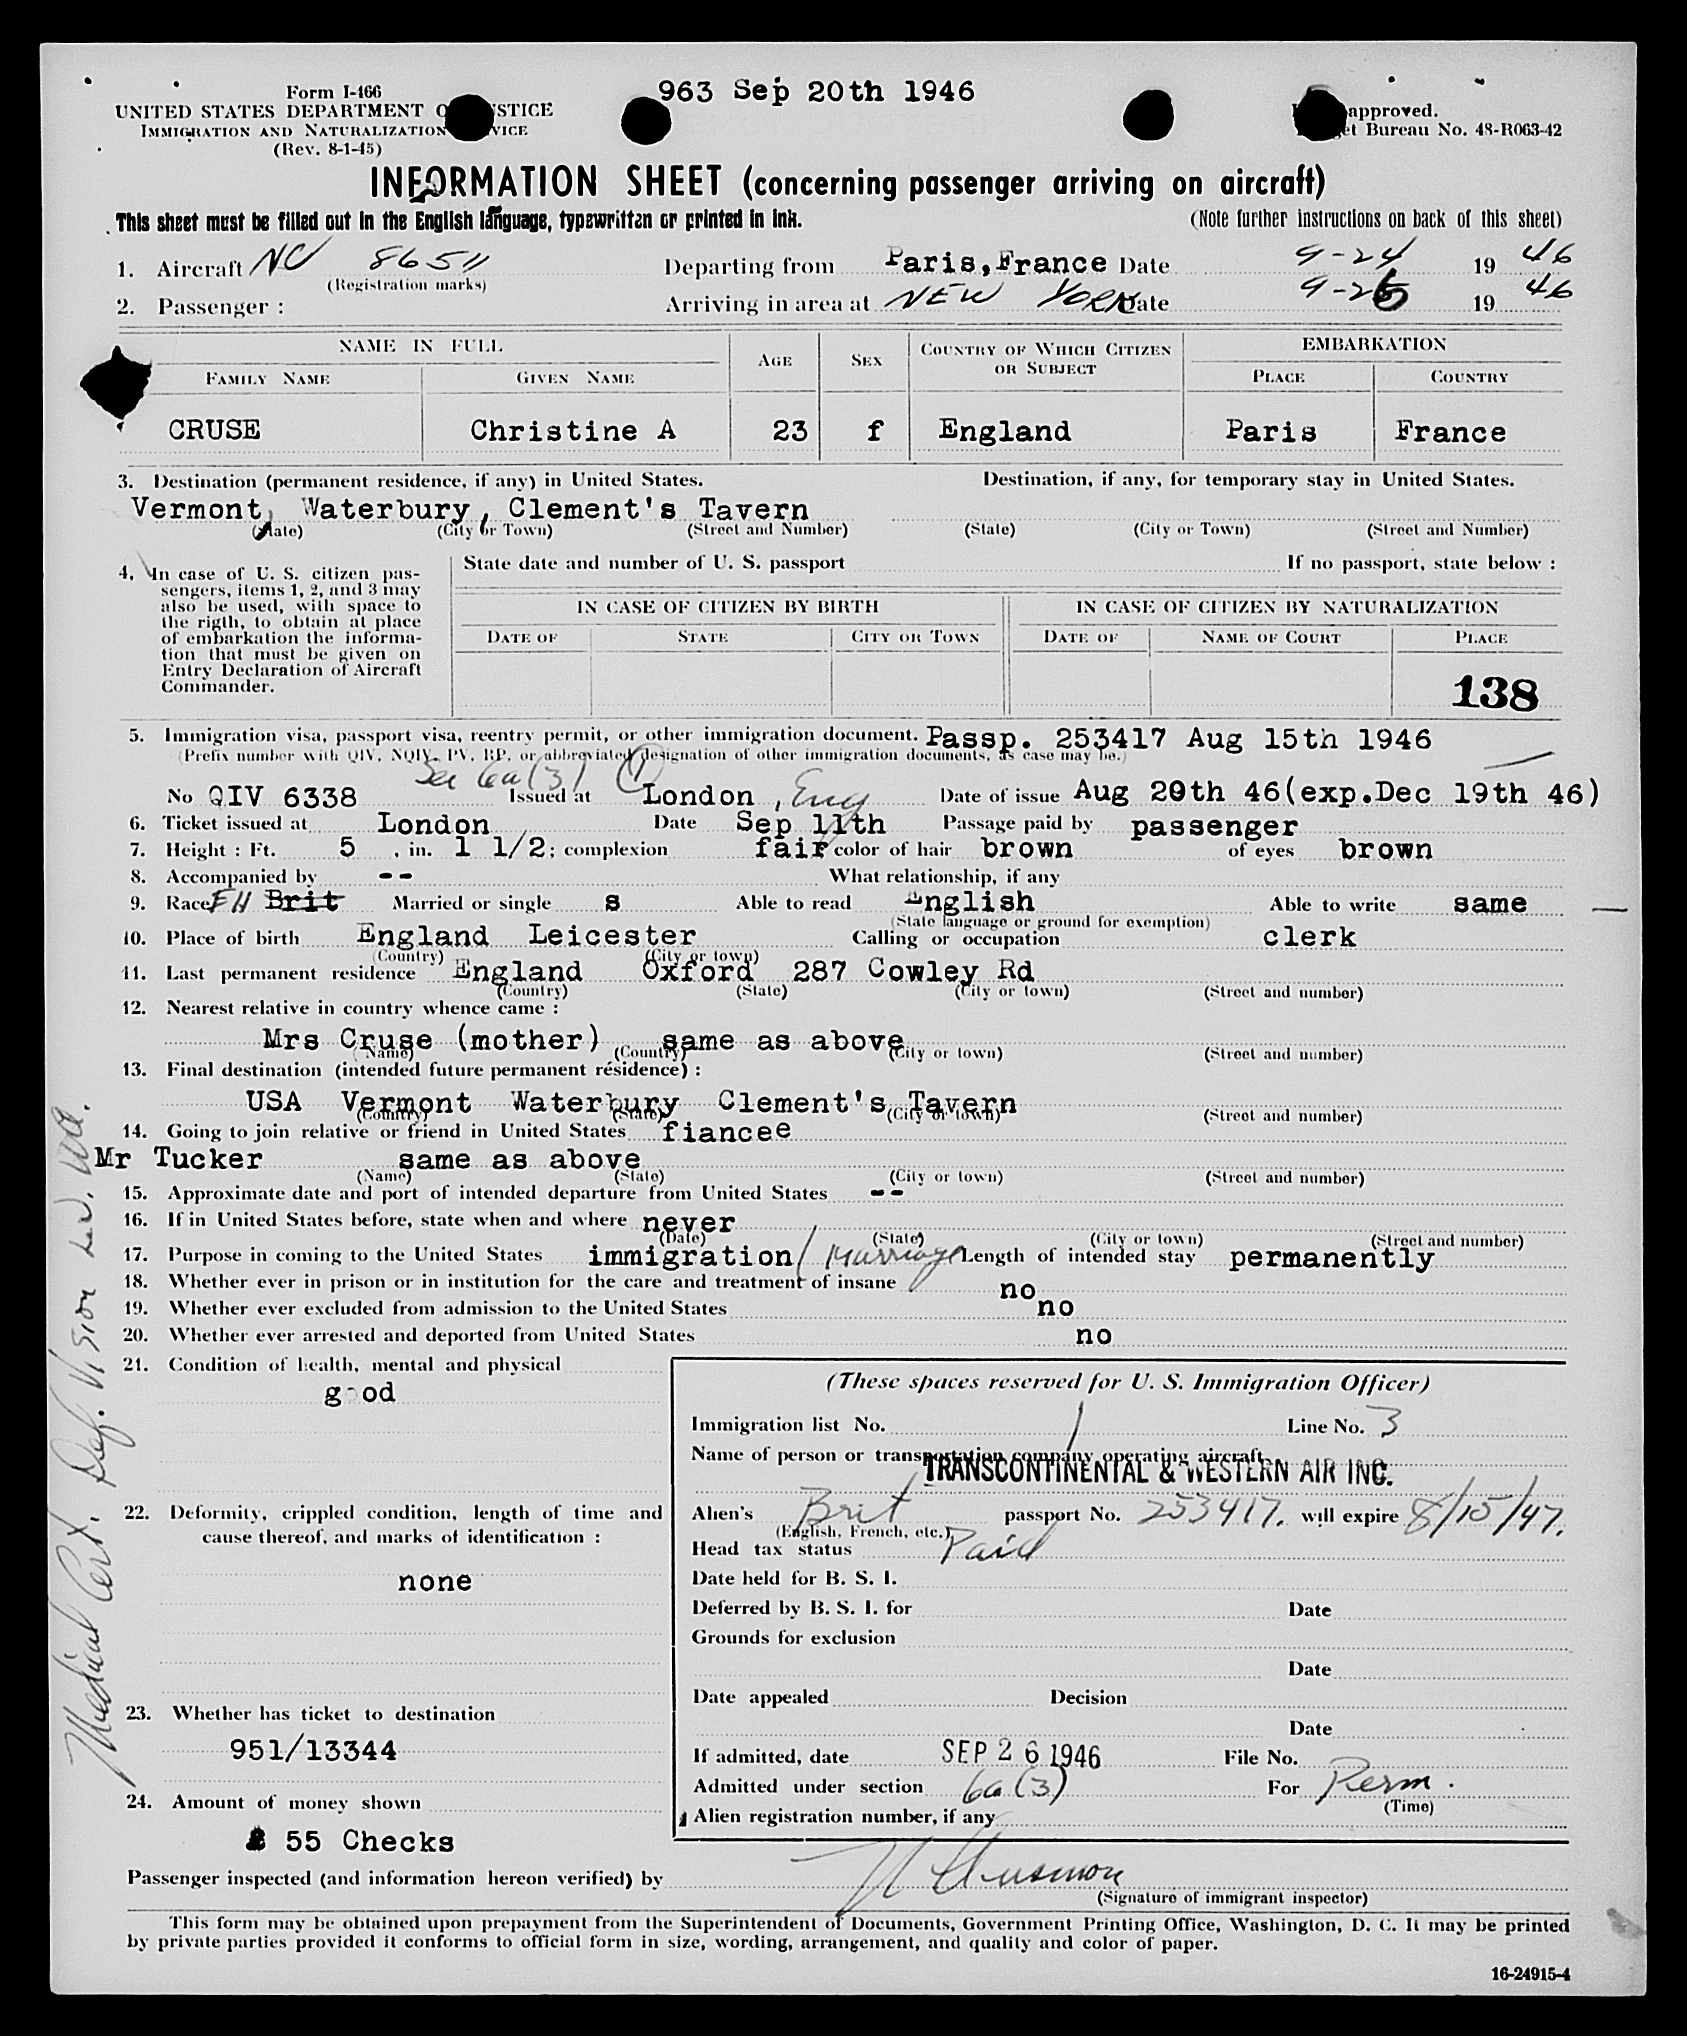 963 Sep 20th 1946
Form I-466
UNITED STATES DEPARTMENT OF JUSTICE
IMMIGRATION AND NATURALIZATION SERVICE
(Rev. 8-1-45)
approved.
Bureau No. 48-R063-42
INFORMATION SHEET (concerning passenger arriving on aircraft)
This sheet must be filled out in the English language, typewritten or printed in ink.
(Note further instructions on back of this sheet)
1. Aircraft NC 86511 Departing from Paris, France Date 9-24 19 46
(Registration marks)
2. Passenger : Arriving in area at NEW YORK Date 9-26 19 46
NAME IN FULL AGE SEX COUNTRY OF WHICH CITIZEN OR SUBJECT EMBARKATION
FAMILY NAME GIVEN NAME PLACE COUNTRY
CRUSE Christine A 23 f England Paris France
3. Destination (permanent residence, if any) in United States. Destination, if any, for temporary stay in United States.
Vermont, Waterbury, Clement's Tavern
(State) (City or Town) (Street and Number) (State) (City or Town) (Street and Number)
4. In case of U. S. citizen pas-
sengers, items 1, 2, and 3 may
also be used, with space to
the rigth, to obtain at place
of embarkation the informa-
tion that must be given on
Entry Declaration of Aircraft
Commander.
State date and number of U. S. passport If no passport, state below :
IN CASE OF CITIZEN BY BIRTH IN CASE OF CITIZEN BY NATURALIZATION
DATE OF STATE CITY OR TOWN DATE OF NAME OF COURT PLACE
138
5. Immigration visa, passport visa, reentry permit, or other immigration document. Passp. 253417 Aug 15th 1946
(Prefix number with QIV, NQIV, PV, RP, or abbreviated designation of other immigration documents, as case may be.)
See 6a(3) (1)
No QIV 6338 Issued at London, Eng Date of issue Aug 20th 46(exp.Dec 19th 46)
6. Ticket issued at London Date Sep 11th Passage paid by passenger
7. Height : Ft. 5 , in. 1 1/2; complexion fair color of hair brown of eyes brown
8. Accompanied by -- What relationship, if any
9. Race EH Brit Married or single s Able to read English Able to write same
(State language or ground for exemption)
10. Place of birth England Leicester Calling or occupation clerk
(Country) (City or town)
11. Last permanent residence England Oxford 287 Cowley Rd
(Country) (State) (City or town) (Street and number)
12. Nearest relative in country whence came :
Mrs Cruse (mother) same as above
(Name) (Country) (City or town) (Street and number)
13. Final destination (intended future permanent résidence) :
USA Vermont Waterbury Clement's Tavern
(Country) (State) (City or town) (Street and number)
14. Going to join relative or friend in United States fiancee
Mr Tucker same as above
(Name) (State) (City or town) (Street and number)
15. Approximate date and port of intended departure from United States --
16. If in United States before, state when and where never
(Date) (State) (City or town) (Street and number)
17. Purpose in coming to the United States immigration / Marriage Length of intended stay permanently
18. Whether ever in prison or in institution for the care and treatment of insane no
19. Whether ever excluded from admission to the United States no
20. Whether ever arrested and deported from United States no
21. Condition of health, mental and physical
good
22. Deformity, crippled condition, length of time and
cause thereof, and marks of identification :
none
23. Whether has ticket to destination
951/13344
24. Amount of money shown
55 Checks
(These spaces reserved for U. S. Immigration Officer)
Immigration list No. 1 Line No. 3
Name of person or transportation company operating aircraft
TRANSCONTINENTAL & WESTERN AIR INC.
Alien's Brit passport No. 253417. will expire 8/15/47.
(English, French, etc.)
Head tax status Paid
Date held for B. S. I.
Deferred by B. S. I. for Date
Grounds for exclusion
Date
Date appealed Decision
Date
If admitted, date SEP 26 1946 File No.
Admitted under section 6a(3) For Perm.
(Time)
Alien registration number, if any
Passenger inspected (and information hereon verified) by
(Signature of immigrant inspector)
This form may be obtained upon prepayment from the Superintendent of Documents, Government Printing Office, Washington, D. C. It may be printed
by private parties provided it conforms to official form in size, wording, arrangement, and quality and color of paper.
16-24915-4
Medical Cert. Def. Vision